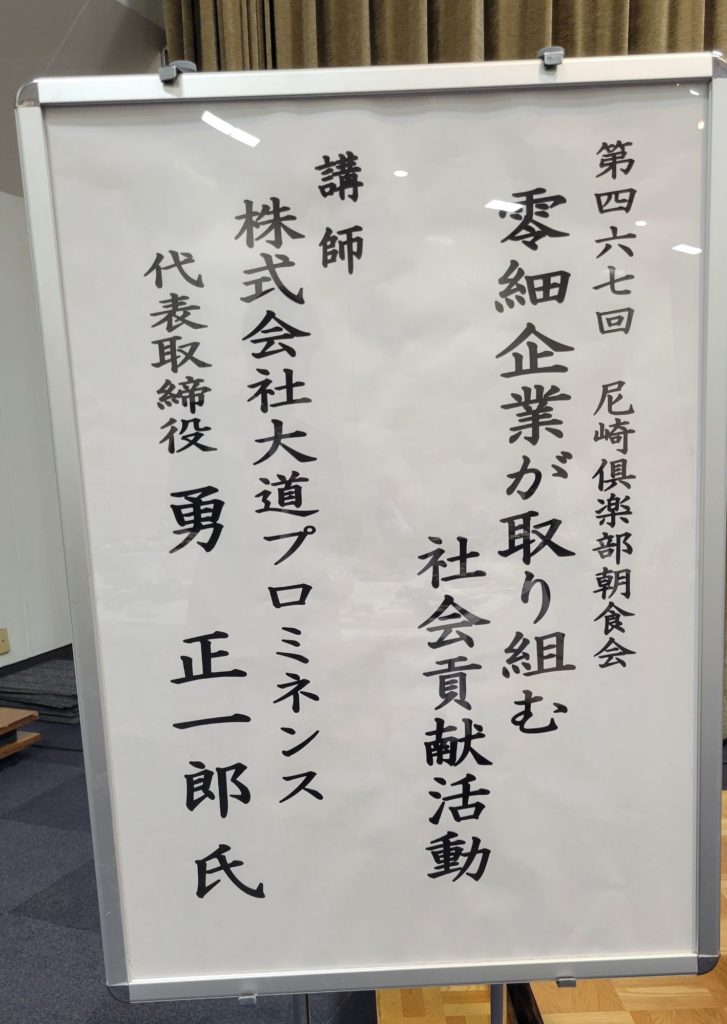 第四六七回　尼崎倶楽部朝食会
零細企業が取り組む
社会貢献活動
講師
株式会社大道プロミネンス
代表取締役　勇　正一郎氏